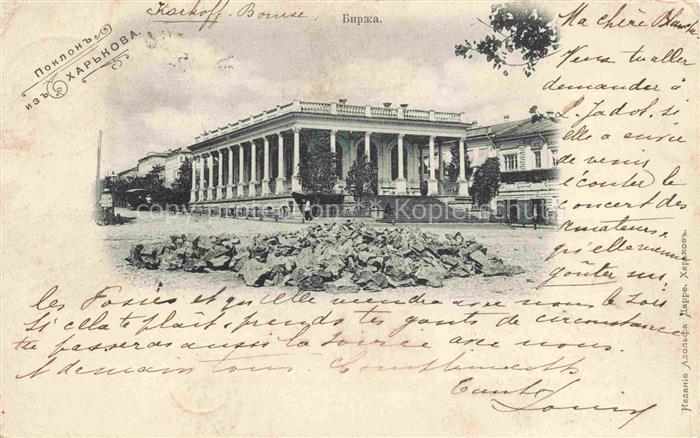 Karkoff - Bourse.
Биржа.
Поклонъ
изъ ХАРЬКОВА.
Ma chère Blanche
Veux tu aller
demander à
L. Jadot, si
elle a envie
de venir
écouter le
concert des
amateurs,
qu'elle vienne
goûter
les Fosses et qu'elle viendra avec nous le soir
Si cela te plaît, prends tes gants de circonstance
tu passeras aussi la soirée avec nous.
A demain tous Compliments
Louis
COPYRIGHT protected - Kopierschutz
Изданіе Адольфа Дарре, Харьковъ.